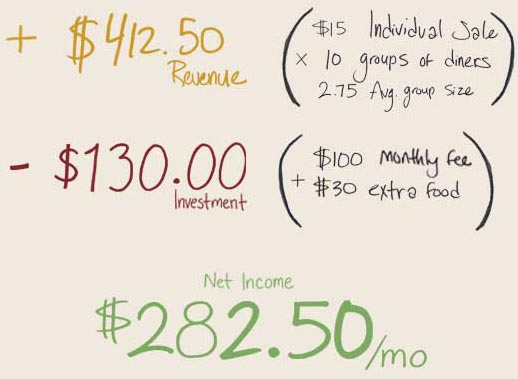 + $412.50
Revenue
$15 Individual Sale
x 10 groups of diners
2.75 Avg. group size
- $130.00
Investment
$100 monthly fee
+ $30 extra food
Net Income
$282.50/mo